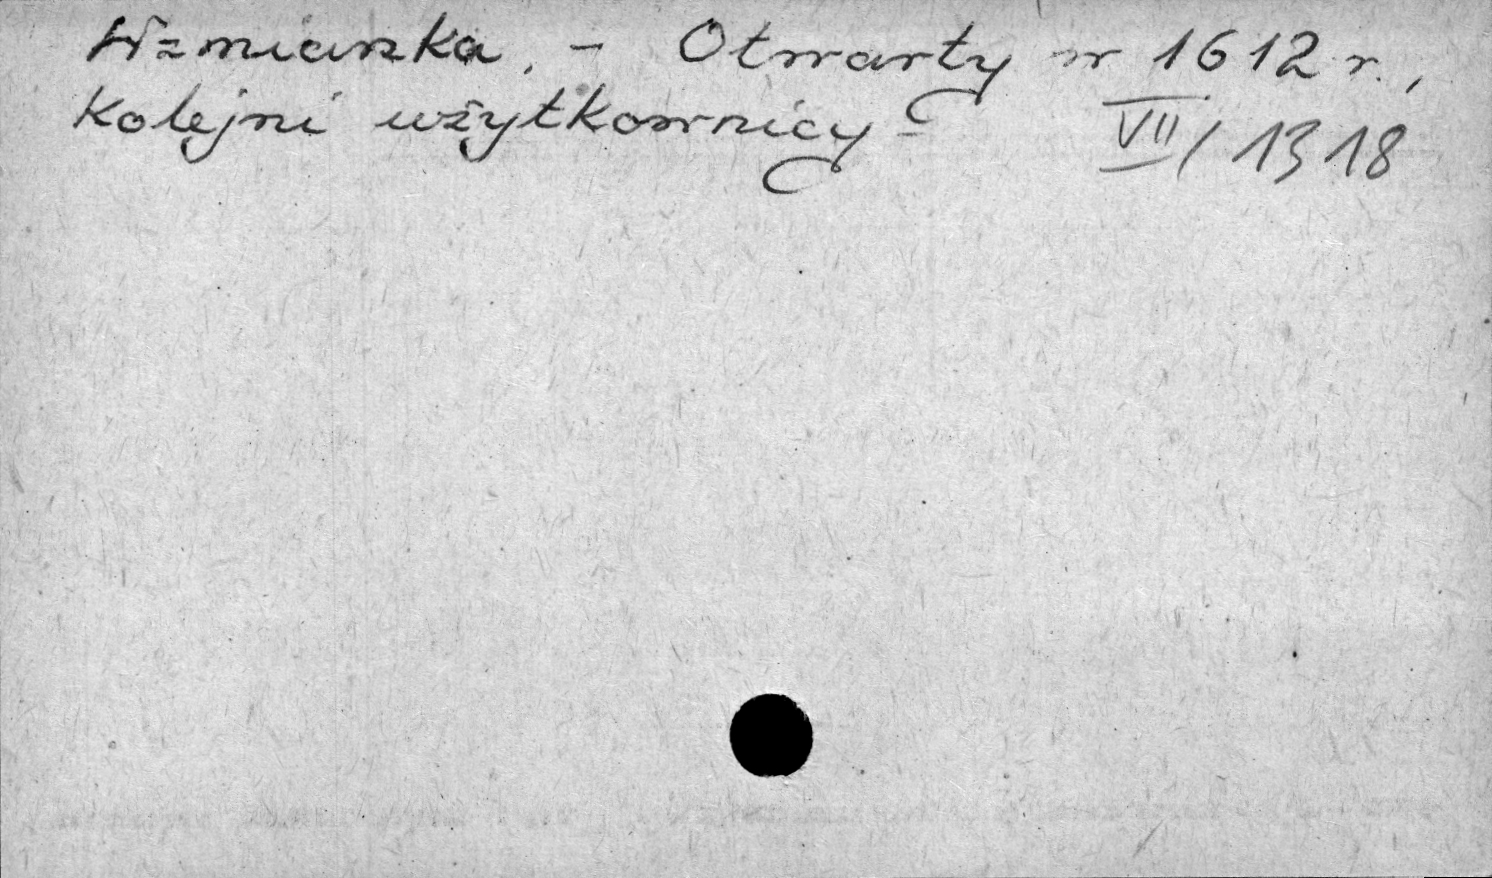 Wzmianka. - Otwarty w 1612 r.,
kolejni użytkownicy - VII/1318